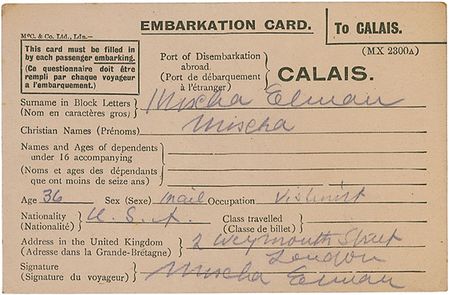 EMBARKATION CARD.
To CALAIS.
(MX 2300A)
McC. & Co. Ltd., Ldn.—
This card must be filled in
by each passenger embarking.
(Ce questionnaire doit être
rempli par chaque voyageur
a l'embarquement.)
Port of Disembarkation
abroad
(Port de débarquement
à l'étranger)
CALAIS.
Surname in Block Letters
(Nom en caractères gros)
Mischa Elman
Christian Names (Prénoms)
Mischa
Names and Ages of dependents
under 16 accompanying
(Noms et ages des dépendants
que ont moins de seize ans)
Age 36 Sex (Sexe) Mail Occupation Violinist
Nationality
(Nationalité)
U.S.A.
Class travelled
(Classe de billet)
Address in the United Kingdom
(Adresse dans la Grande-Bretagne)
2 Weymouth Street
London
Signature
(Signature du voyageur)
Mischa Elman